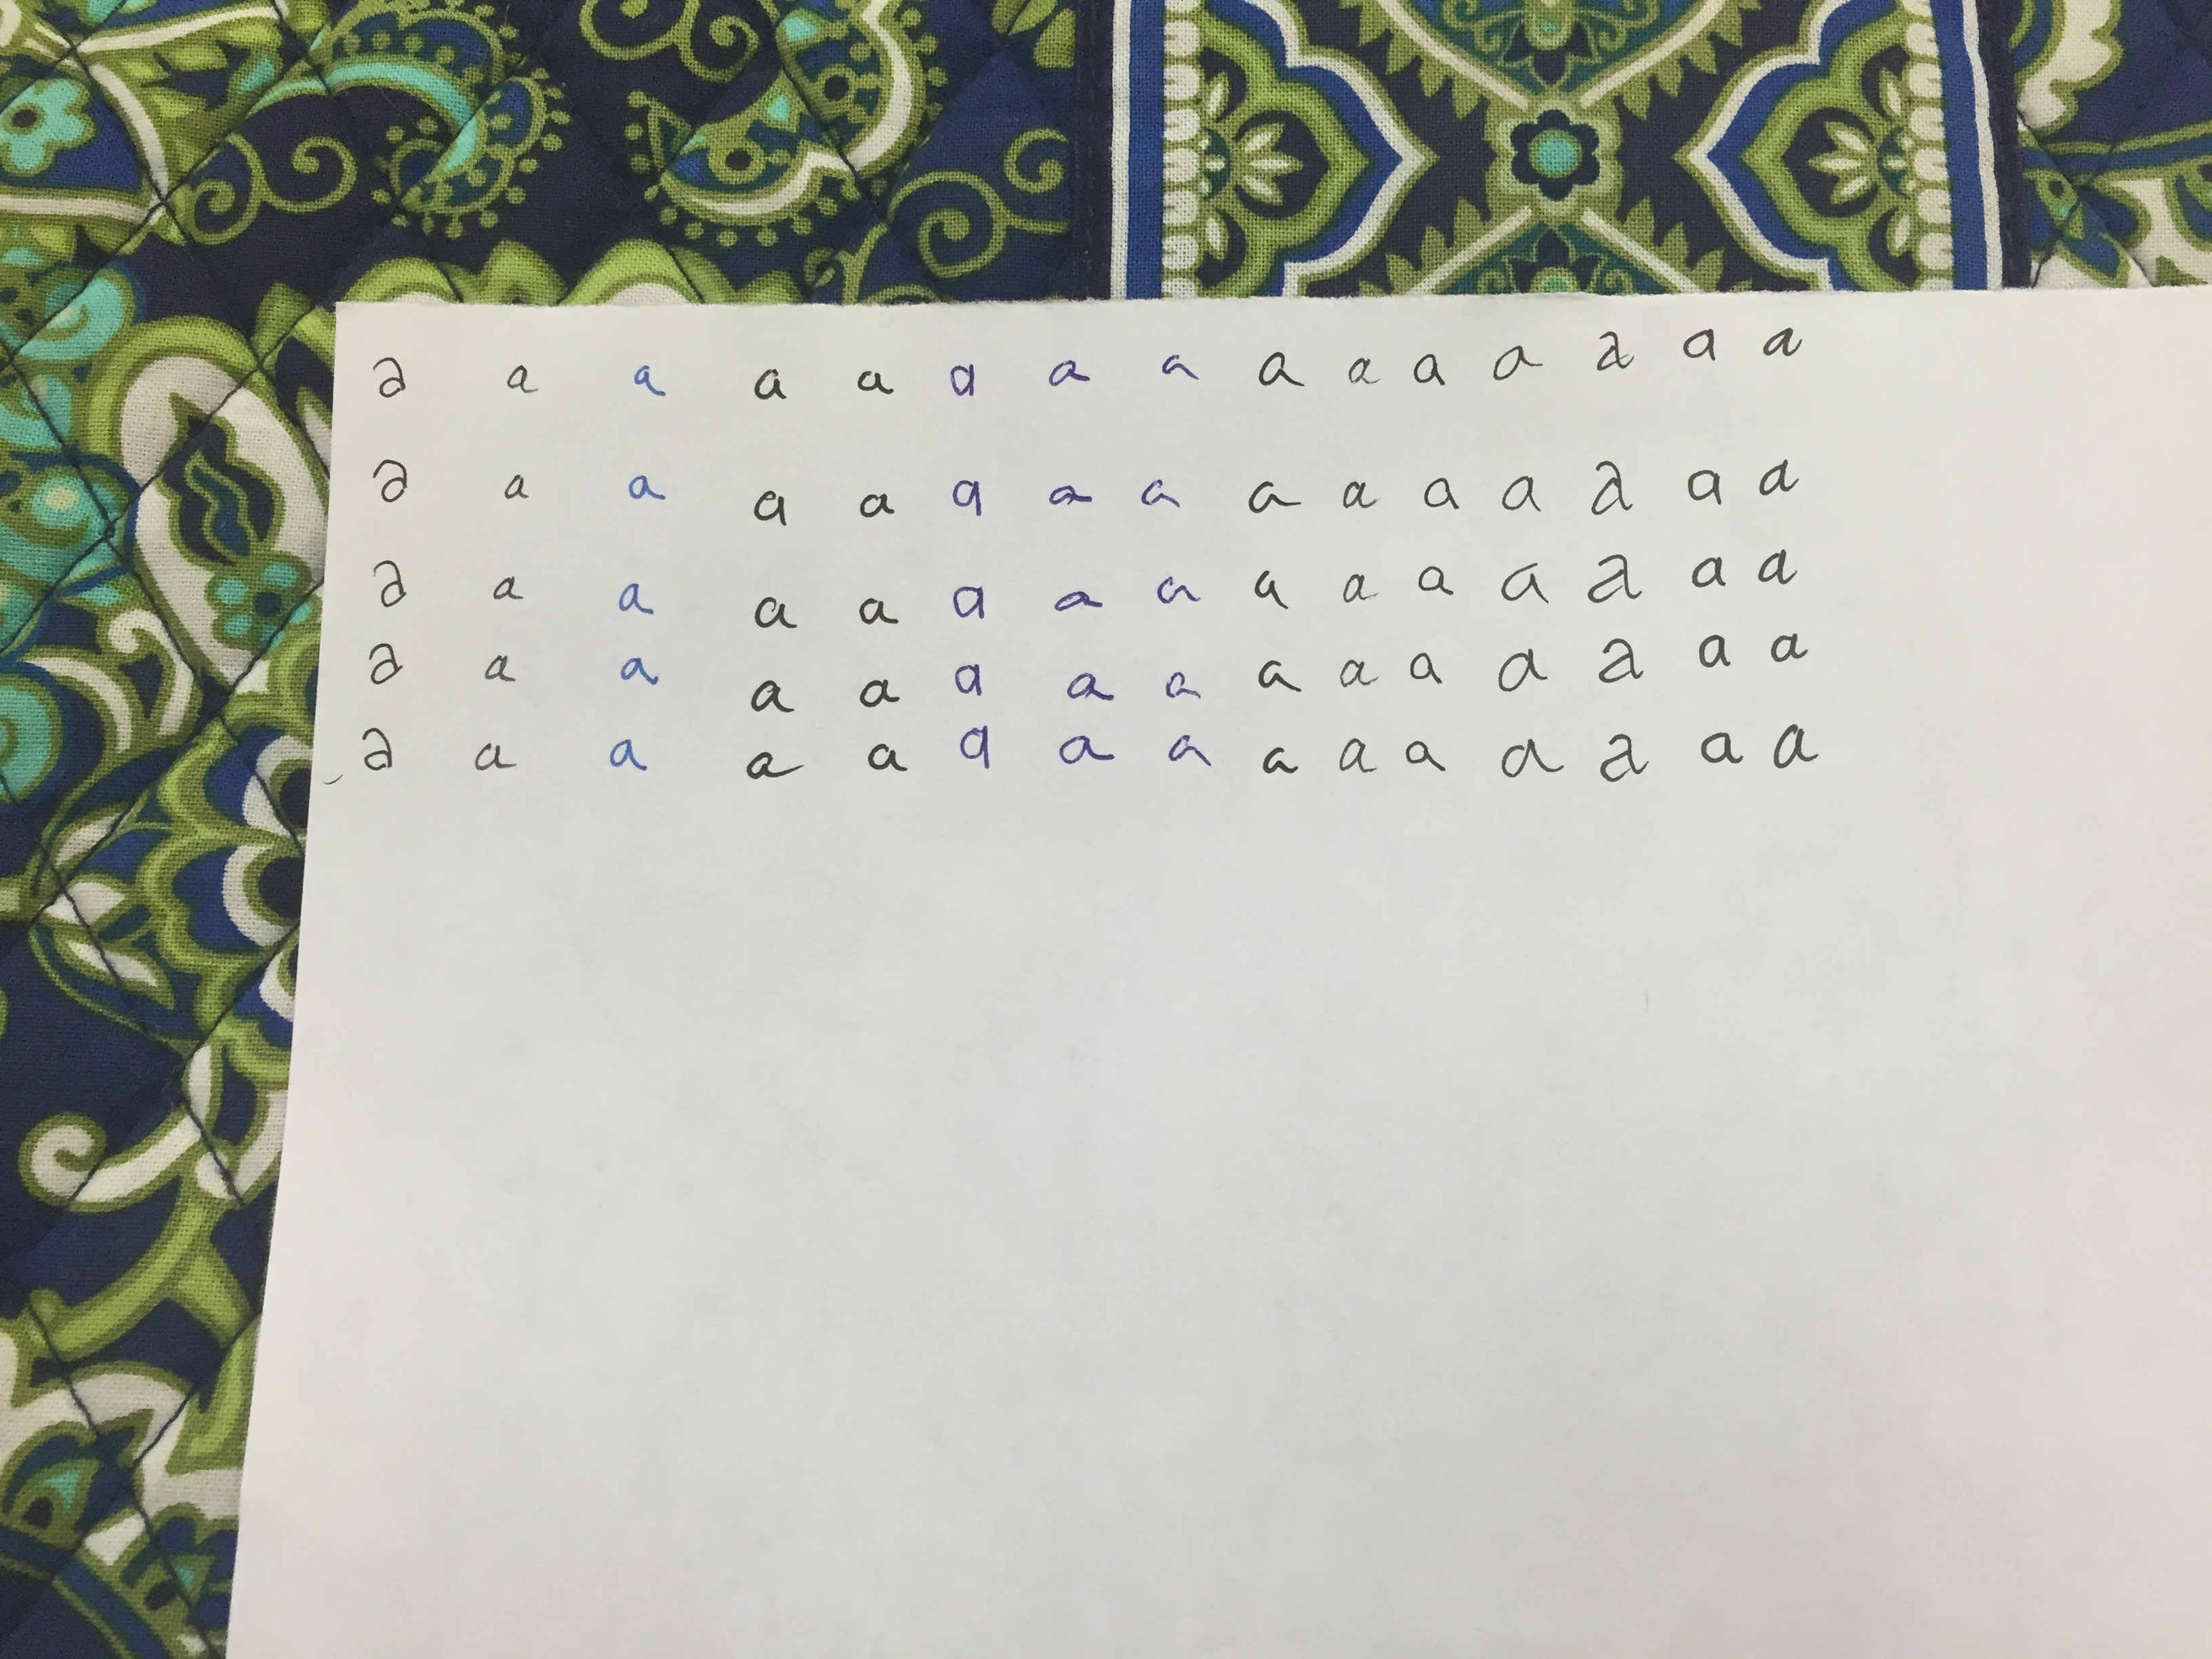 a a a a a a a a a a a a a a a
a a a a a a a a a a a a a a a
a a a a a a a a a a a a a a a
a a a a a a a a a a a a a a a
a a a a a a a a a a a a a a a